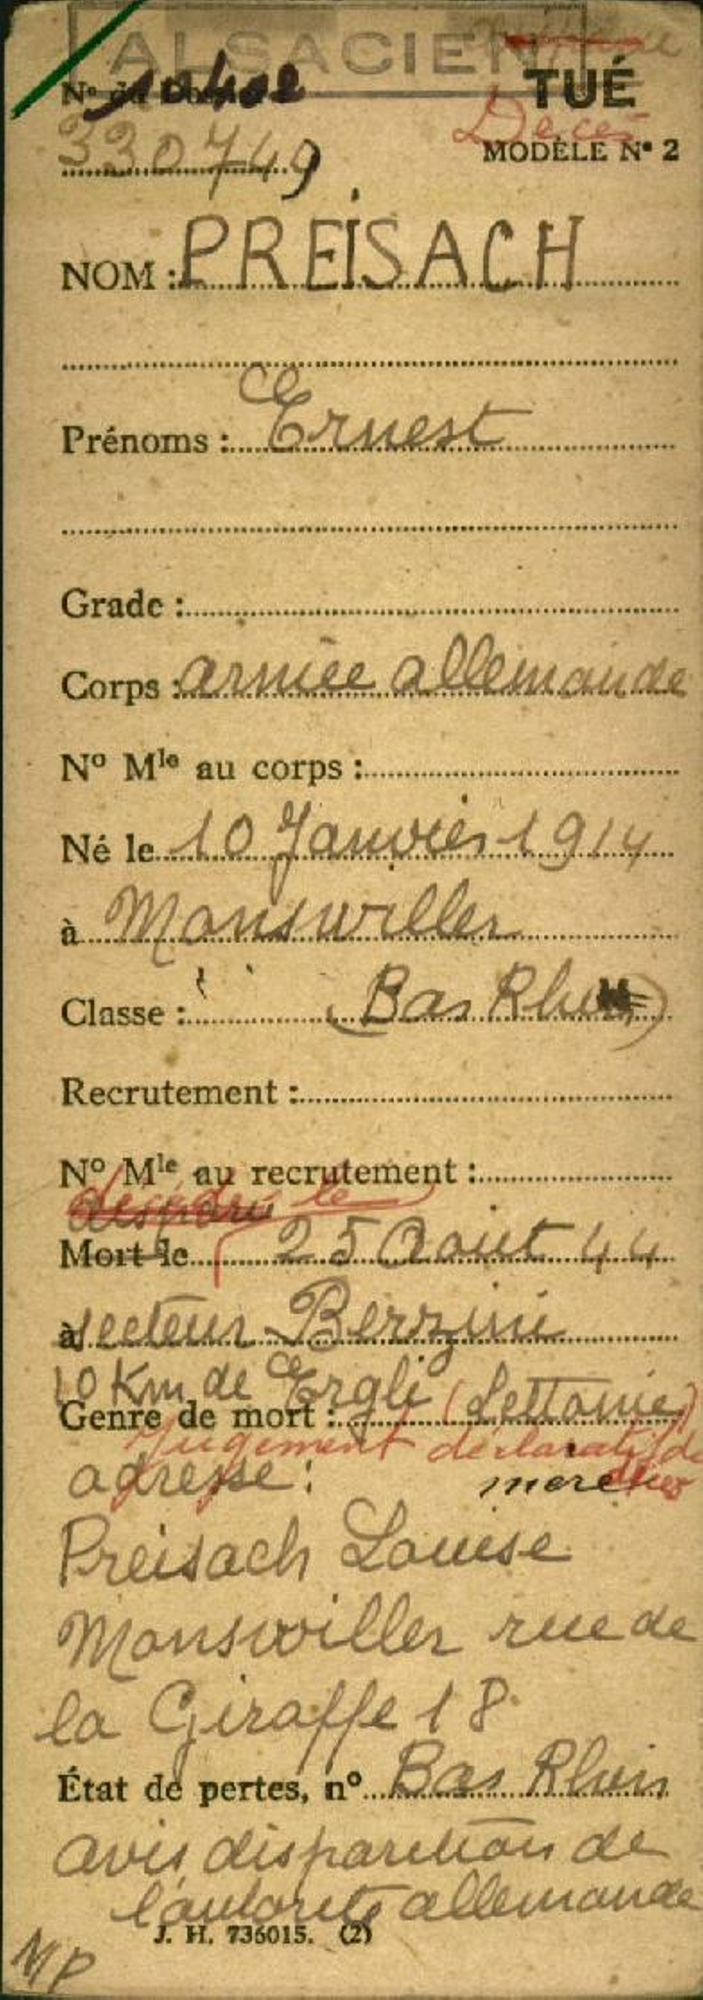 ALSACIEN
TUÉ
N° du Dossier 10402
Décès
330749
MODÈLE N° 2
NOM : PREISACH
Prénoms : Ernest
Grade :
Corps : armée allemande
N° Mle au corps :
Né le 10 Janvier 1914
à Monswiller
Classe : (Bas Rhin)
Recrutement :
N° Mle au recrutement :
disparu
décédé le
Mort le 25 Aout 44
à secteur Berzini
10 Km de Ergli (Lettonie)
Genre de mort :
Jugement déclaratif de
adresse : mere
Preisach Louise
Monswiller rue de
la Giraffe 18
État de pertes, n° Bas Rhin
avis disparition de
l'autorité allemande
J. H. 736015. (2)
MP